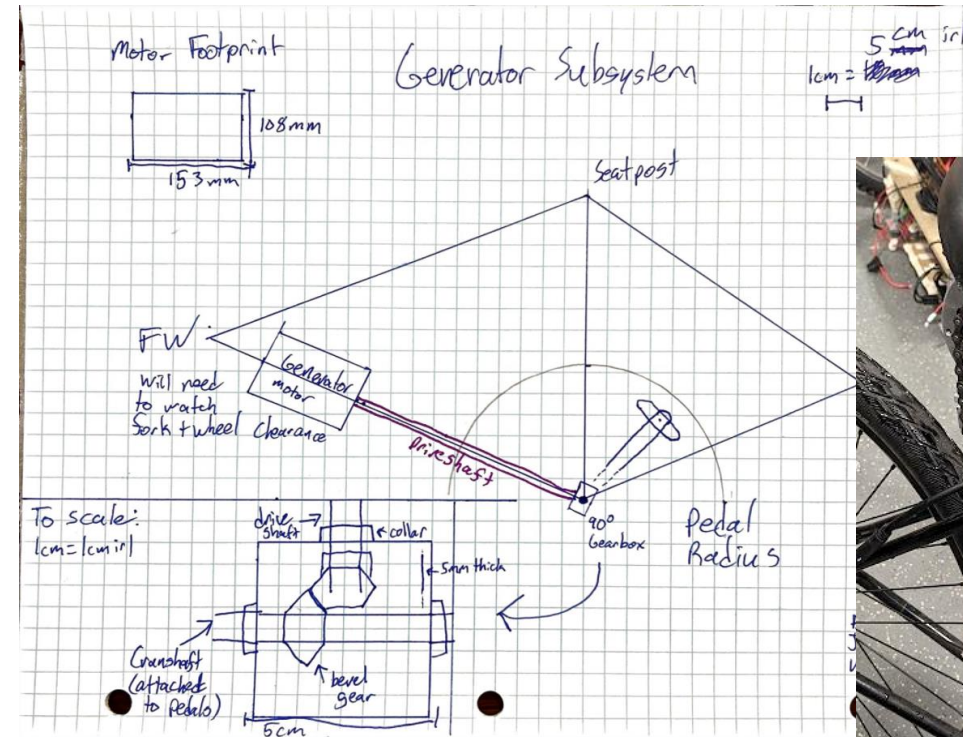 Motor Footprint
108mm
153mm
Generator Subsystem
5 cm irl
1cm =
Seatpost
FW
Will need
to watch
fork + wheel clearance
Generator
motor
Driveshaft
90°
Gearbox
Pedal
Radius
To scale:
1cm=1cm irl
drive
shaft
collar
5mm thick
Crankshaft
(attached
to pedals)
bevel
gear
5cm